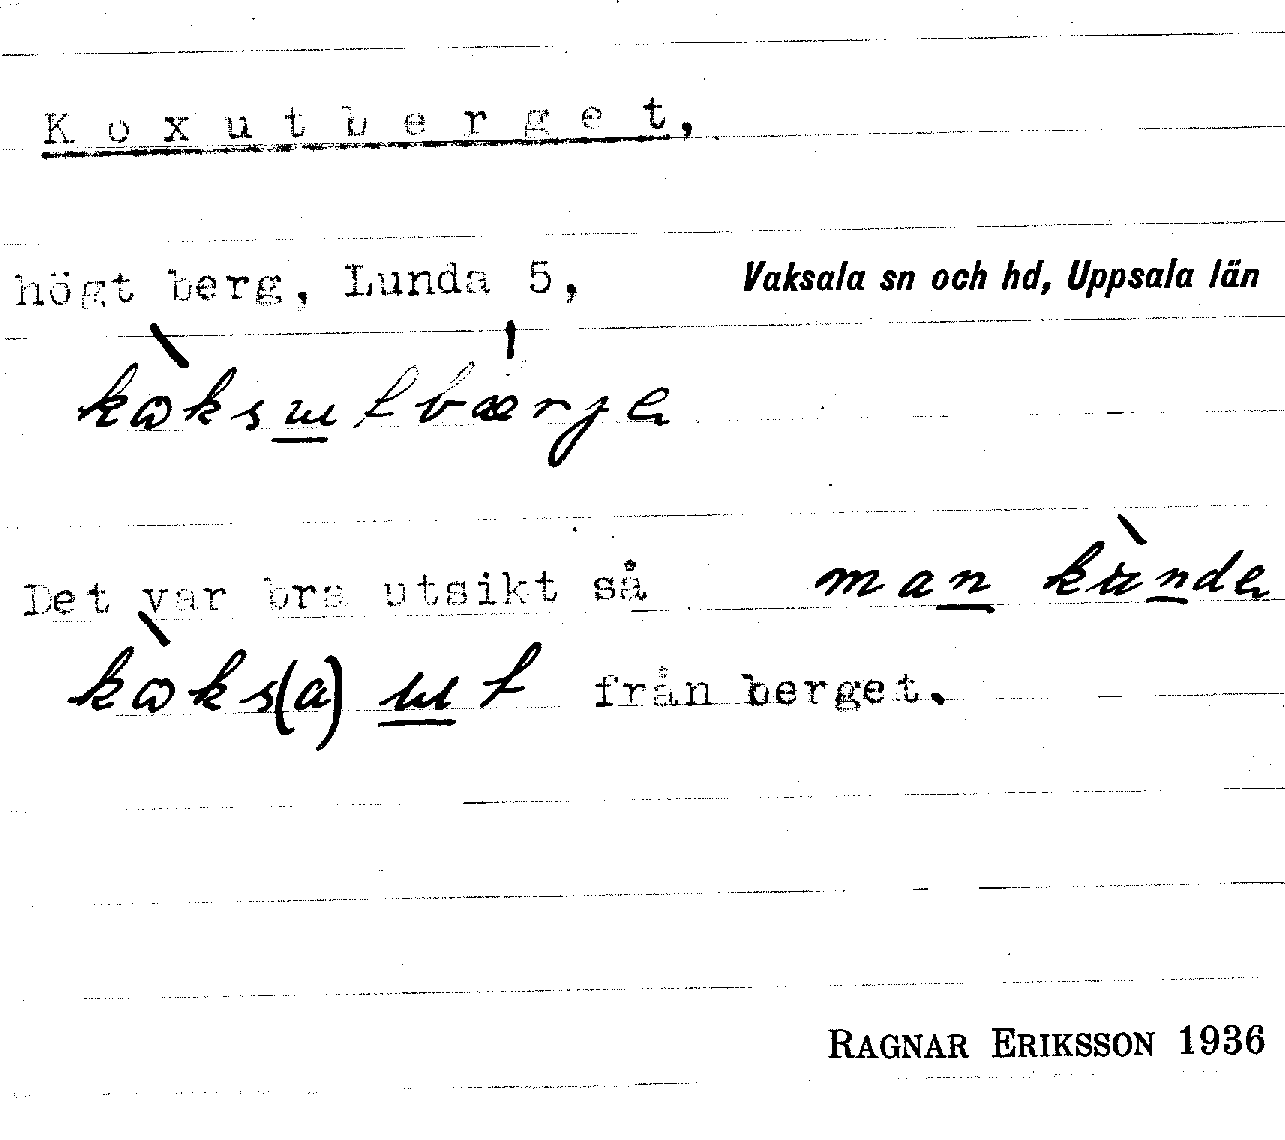 Koxutberget,
högt berg, Lunda 5, Vaksala sn och hd, Uppsala län
kωksɯtbærje
Det var bra utsikt så man kunde
kωks(a) ɯt från berget.
RAGNAR ERIKSSON 1936